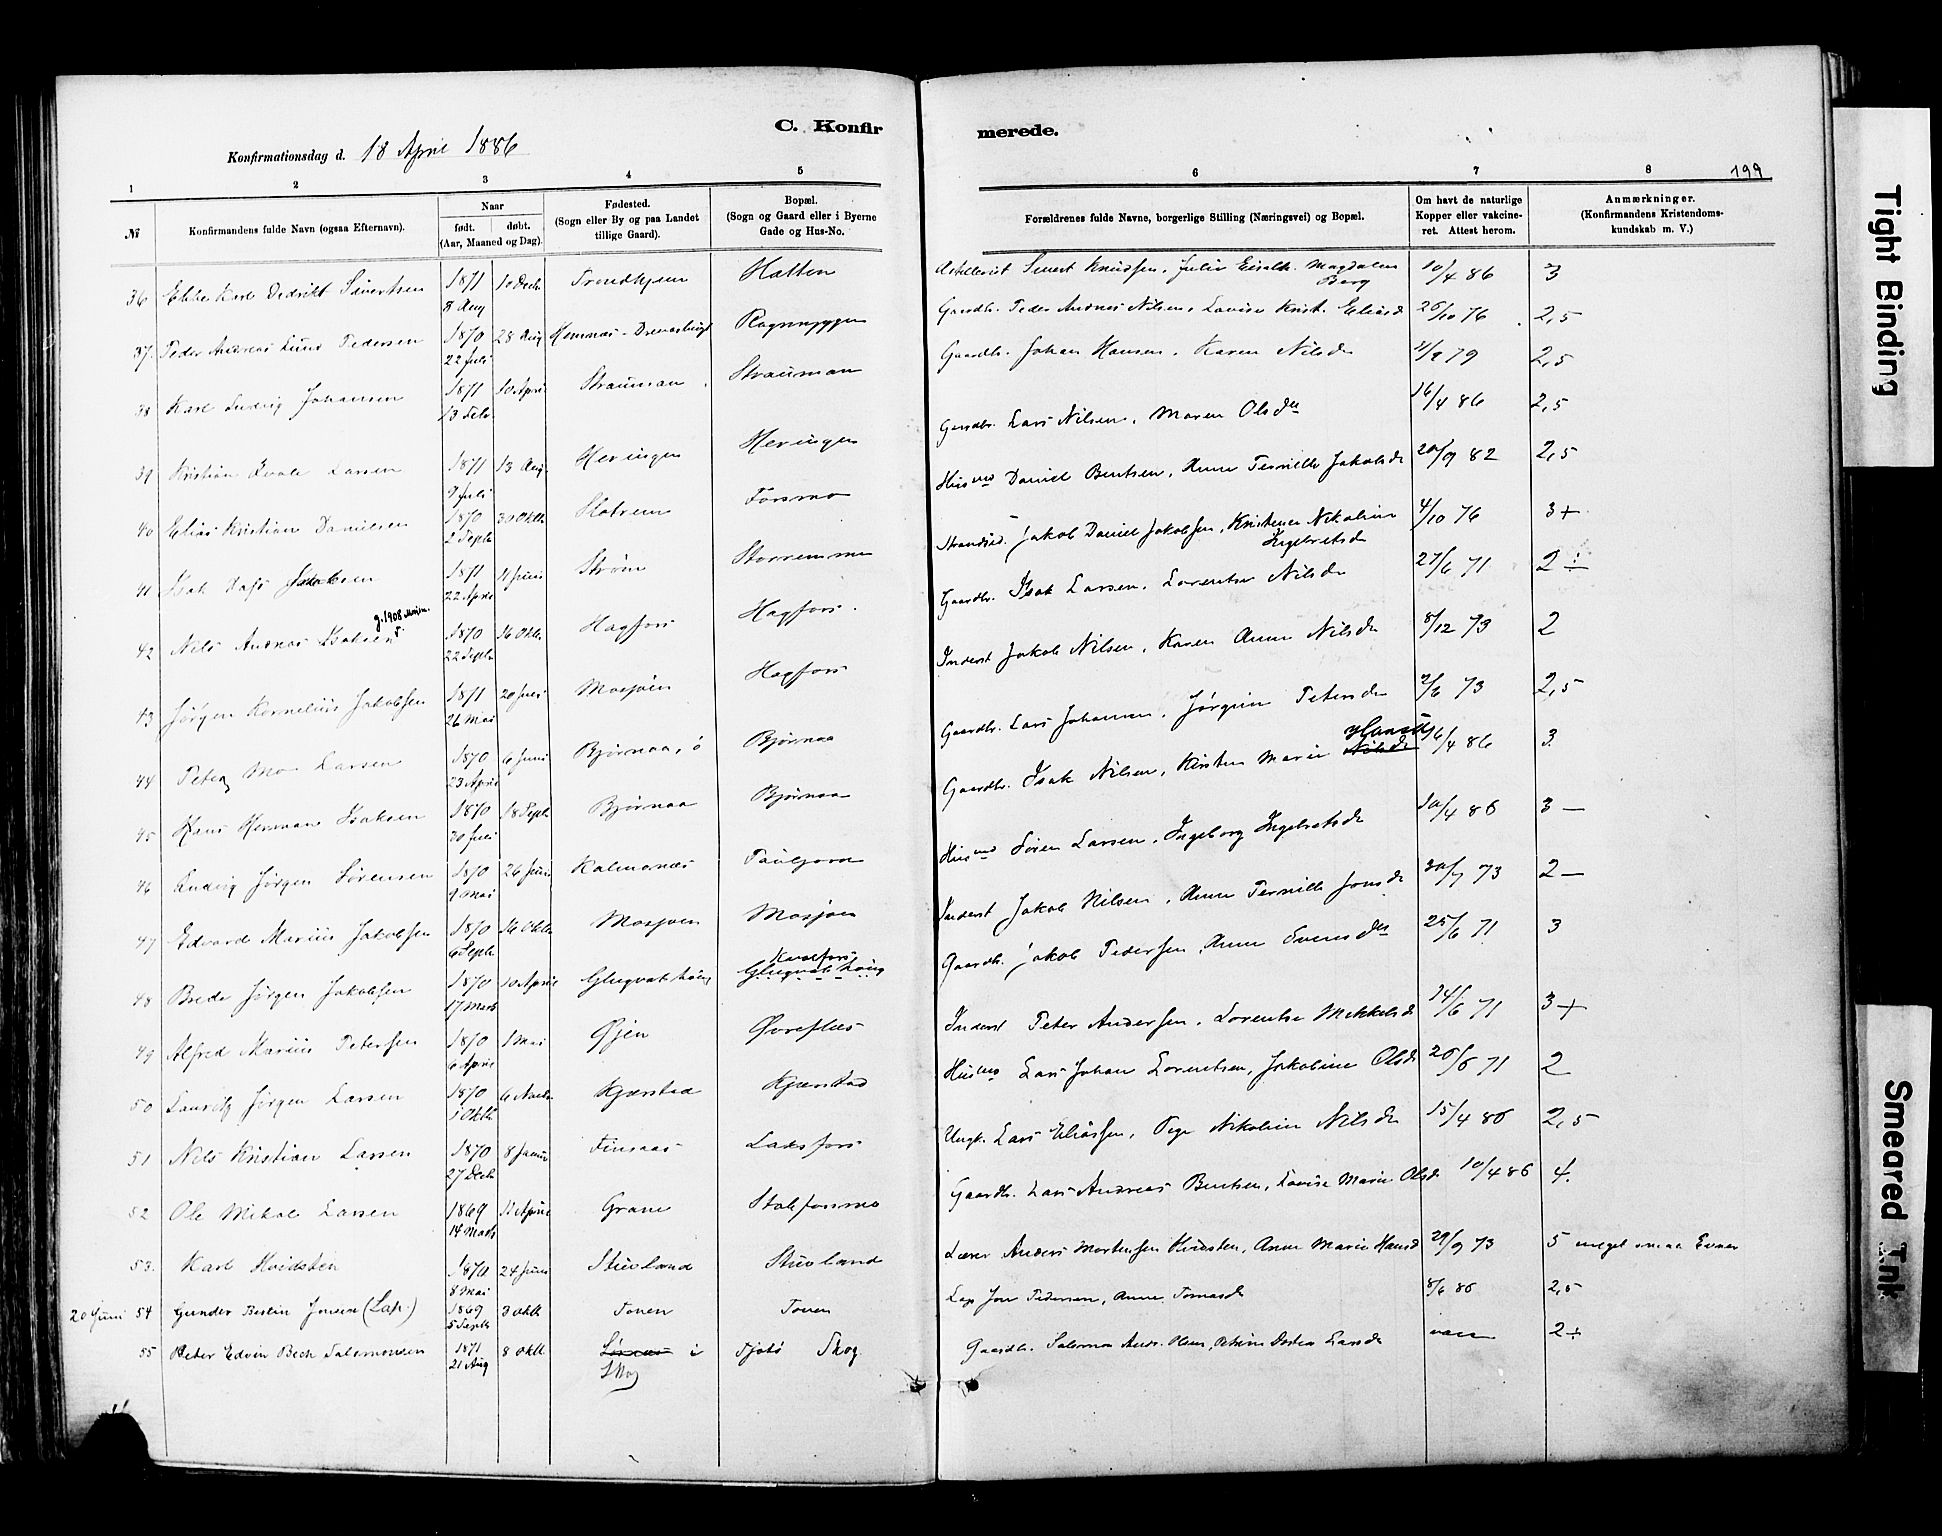 C. Konfirmerede.
Konfirmationsdag d. 18 April 1886
199
1 2 3 4 5 6 7 8
№
Konfirmandens fulde Navn (ogsaa Efternavn).
Naar
født. døbt.
(Aar, Maaned og Dag).
Fødested.
(Sogn eller By og paa Landet
tillige Gaard).
Bopæl.
(Sogn og Gaard eller i Byerne
Gade og Hus-No.
Forældrenes fulde Navne, borgerlige Stilling (Næringsvei) og Bopæl.
Om havt de naturlige
Kopper eller vakcine-
ret. Attest herom.
Anmærkninger.
(Konfirmandens Kristendoms-
kundskab m. V.)
36 Karl Didrikt Sivertsen 1871 8 Aug 10 Decb Trondhjem Hatten Sivert Knudsen, Julie Magdalena Berg 10/4 86 3
37. Peder Andreas Lund Pedersen 1870 22 Juli 28 Aug Gaardbr. Peder Andreas Nilsen, Lovise Krist. Eliasd 26/10 76 2,5
38 Karl Ludvig Johansen 1871 13 Feb 10 April Strauman Strauman Gaardbr. Johan Hansen, Karen Nilsdr 79 2,5
39 Kristian Larsen 1871 9 Juli 13 Aug. Heringen Heringen Gaardbr. Lars Nilsen, Maren Olsdtr 16/4 86 2,5
40 Elias Kristian Danielsen 1870 2 Septb 30 Oktb Forsmo Husmd Daniel Bentsen, Anne Pernille Jakobsdr 20/9 82 2,5
41 Isak Jakobsen 1871 22 April 11 Juni Strøm Jakob Daniel Jakobsen, Nikoline Ingebretsdr 4/10 76 3+
42 Nils Andreas Isaksen g. 1908 1870 22 Septb 16 Oktb Hagfors Hagfors. Gaardbr. Isak Larsen, Lorentse Nilsdr 27/6 71 2 ÷
43 Jørgen Kornelius Jakobsen 1871 26 Mai 20 Juli Mosjøen Hagfors Inderst Jakob Nilsen, Karen Anna Nilsdr 8/12 73 2
44 Peter Mo Larsen 1870 23 April 6 Juni Bjørnaa, ö Bjørnaa Gaardbr. Lars Johansen, Jørgine Petersdr 2/6 73 2,5
45 Hans Hermann Isaksen 1870 30 Juli 18 Septb Bjørnaa Bjørnaa Gaardbr. Isak Nilsen, Kirsten Marie Nilsdr Hansdr 16/4 86 3
46 Ludvig Jørgen Sørensen 1870 9 Mai 26 Juni Husmd Søren Larsen, Ingeborg Ingebretsdr 10/4 86 3 —
47 Edvard Marius Jakobsen 1870 6 Septb 16 Oktb Mosjøen Mosjøen Inderst Jakob Nilsen, Anne Pernille Jonsdr 30/7 73 2 —
48 Brede Jørgen Jakobsen 1870 17 Marts 10 April Gaardbr. Jakob Pedersen, Anne Svensdtr 25/6 71 3
49 Alfred Marius Petersen 1870 6 April 1 Mai Øjen Inderst Peter Andersen, Lorentse Mikkelsdr 14/6 71 3+
50 Lauritz Jørgen Larsen 1870 1 Oktb 6 Novbr Kjærstad Kjærstad Husmd Lars Johan Lorentsen, Jakobine Olsdr 26/6 71 2
51 Nils Kristian Larsen 1870 27 Decb 8 Januar Finsaas Laksfors Ungk. Lars Eliassen, Pige Nikoline Nilsdr 15/4 86 2,5
52 Ole Mikal Larsen 1869 14 Marts 11 April Grane Stalforsmo Gaardbr. Lars Andreas Bentsen, Lovise Marie Olsdr 10/4 86 4.
53. Karl Kvidsten 1870 8 Mai 24 Juni Stuvland Stuvland Lærer Anders Mortensen Kvidsten, Anne Marie Hansd 29/9 73 5 meget smaa Evner
20 Juni 54 Gunder Jonsen (Lap.) 1869 5 Septb 3 Oktb Toven Toven Lap Jon Pedersen, Anne Tomasdr 8/6 86 2,5
55 Peter Edvin Bech Salomonsen 1871 21 Aug 8 Oktb i Skog Tjøtø Skog Gaardbr. Salomon Andr. Olsen, Larsdr vacc 2÷
Tight Binding
Smeared Ink